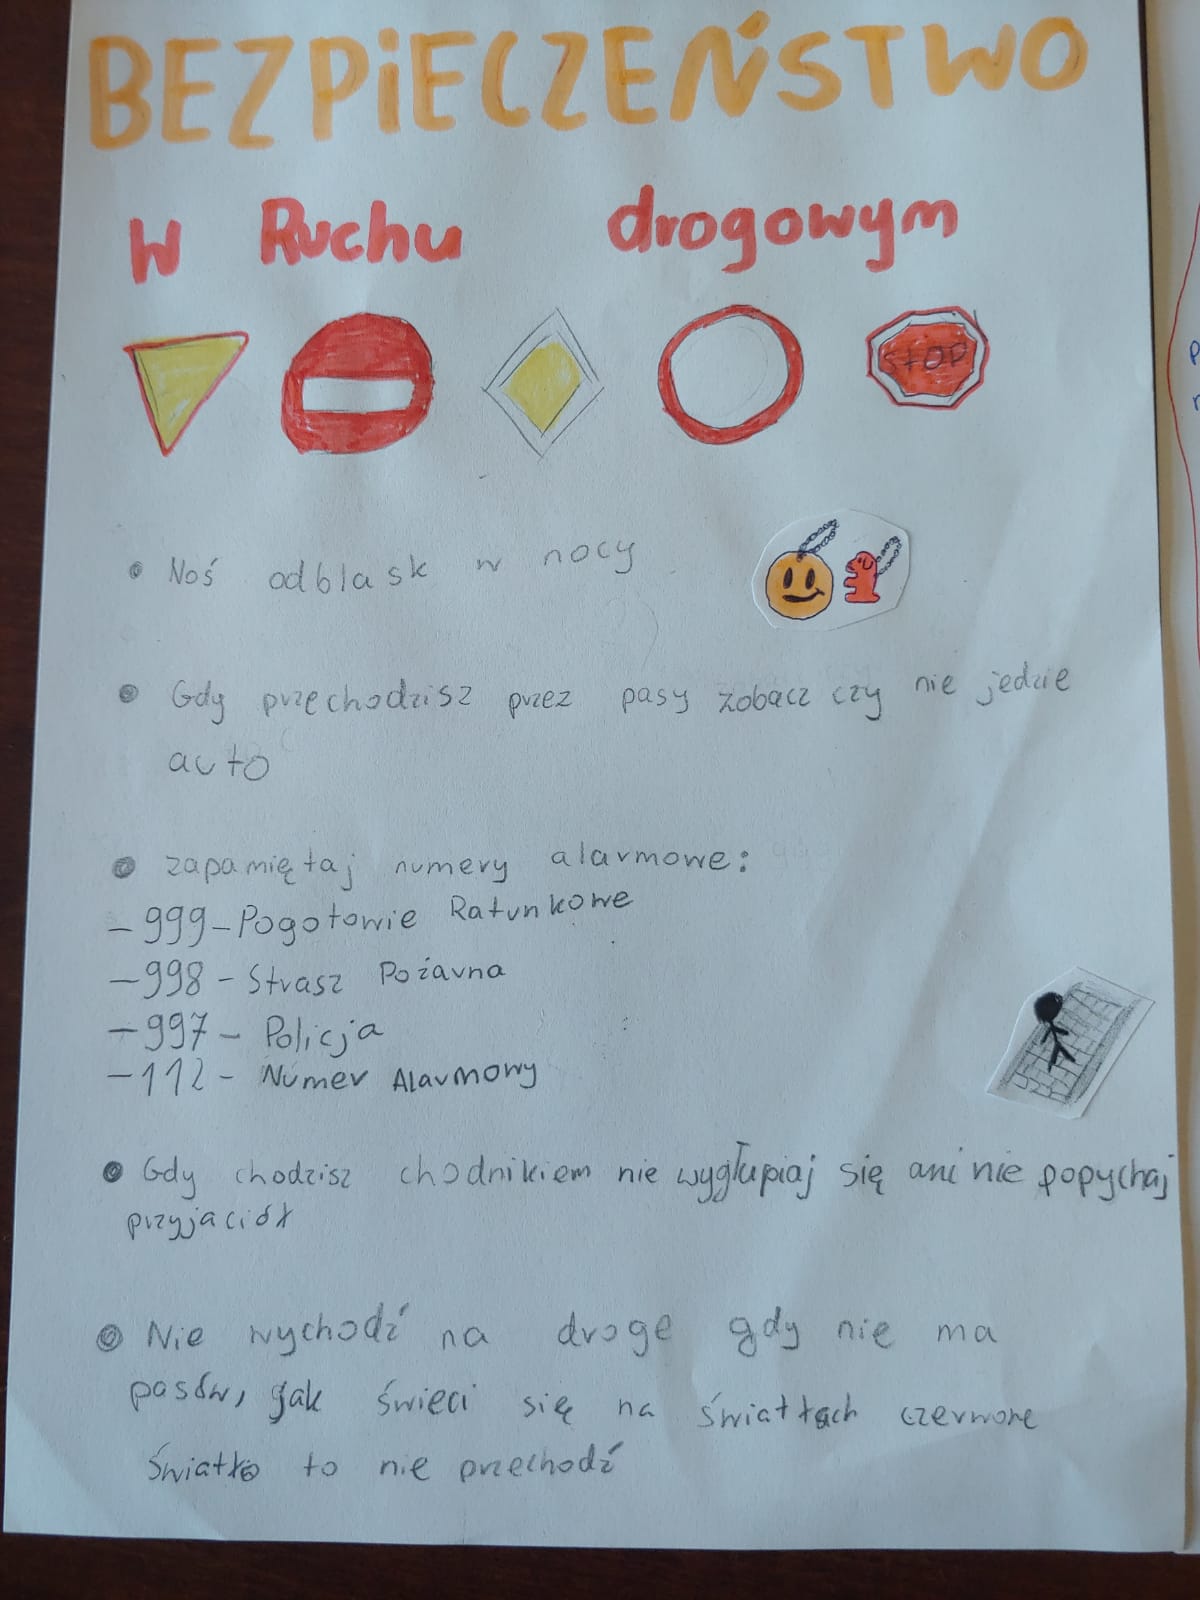 BEZPiECZEŃSTWO
W Ruchu drogowym
STOP
Noś odblask w nocy
Gdy przechodzisz przez pasy zobacz czy nie jedzie
auto
zapamiętaj numery alarmowe:
-999-Pogotowie Ratunkowe
-998-Strasz Pożarna
-997- Policja
-112- Numer Alarmowy
Gdy chodzisz chodnikiem nie wygłupiaj się ani nie popychaj
przyjaciół
Nie wychodź na droge gdy nie ma
pasów, jak świeci się na światłach czerwone
światło to nie przechodź